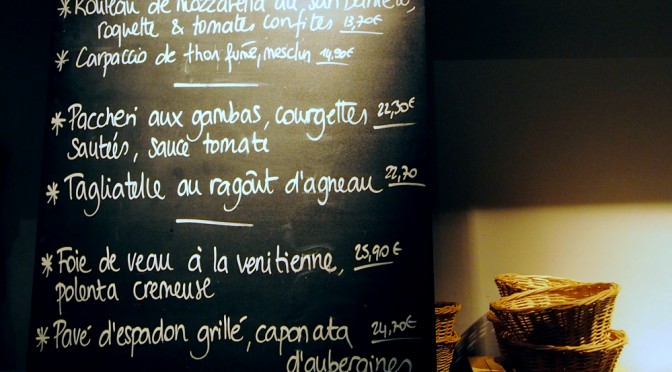 *Rouleau de mozzarella au san Daniele,
roquette & tomates confites 13,70€
*Carpaccio de thon fumé, mesclun 14,90€
*Paccheri aux gambas, courgettes 22,30€
sautées, sauce tomate
*Tagliatelle au ragoût d'agneau 22,70
*Foie de veau à la venitienne, 25,90€
polenta cremeuse
*Pavé d'espadon grillé, caponata 24,70€
d'aubergines